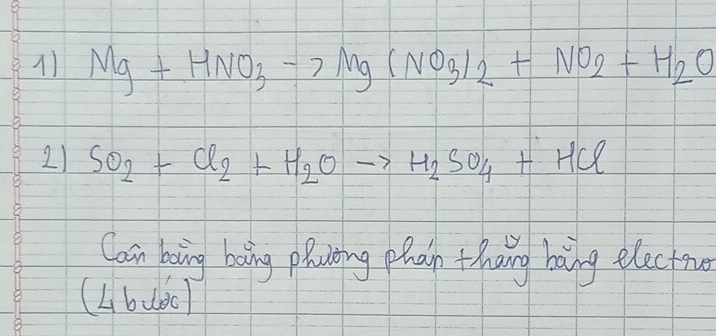 1) Mg + HNO3 -> Mg(NO3)2 + NO2 + H2O
2) SO2 + Cl2 + H2O -> H2SO4 + HCl
Cân bằng bằng phương pháp thăng bằng electro
(4 bước)